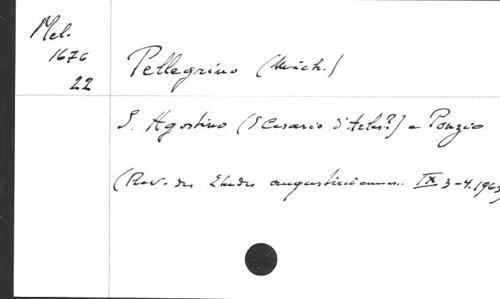 Mel.
1676
22
Pellegrino (Mich.)
S. Agostino (S Cesario d'Arles?) e Ponzio
(Rev. des Etudes augustiniennes. IX 3-4. 1963)